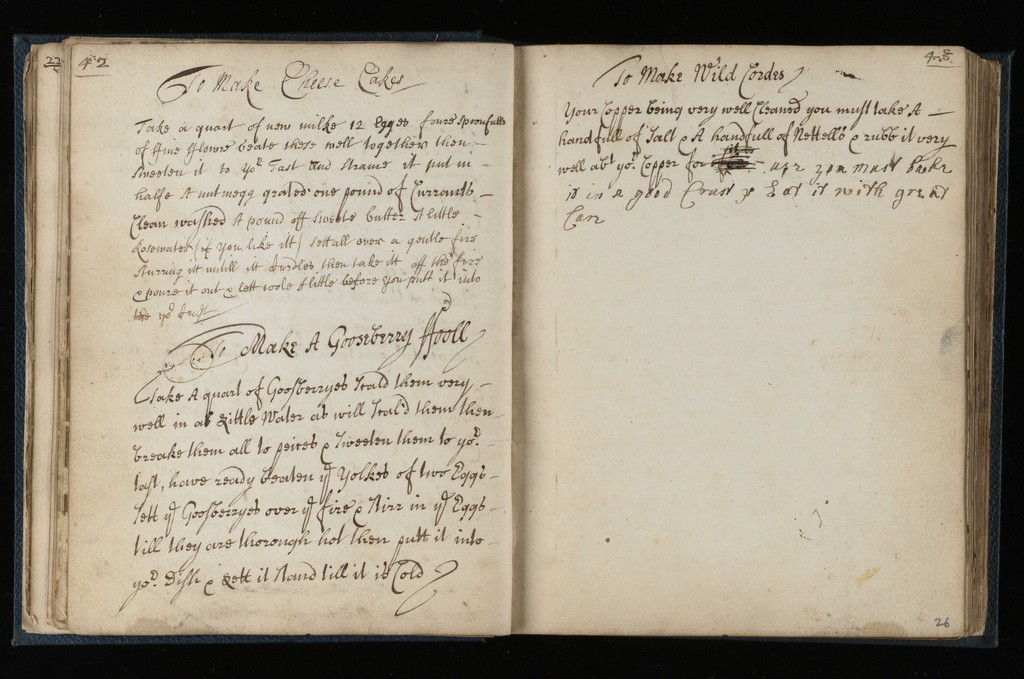 22 42
To Make Cheese Cakes
Take a quart of new milke 12 Egges foure spoonfulls
of fine flowre beate these well together then
sweeten it to yor. Tast and straine it put in
halfe A nutmegg grated one pound of Currants
Clean washed A pound off sweete butter A little
Rosewater (if you like itt) sett all over a gentle fire
sturring itt untill itt Curdles then take itt off the fire
& poure it out & lett coole A little before you putt it into
the yor Crust
To Make A Gooseberry ffooll
Take A quart of Goosberryes scald them very
well in as Little Water as will scal'd them then
breake them all to peices & sweeten them to yor.
tast, have ready beaten ye Yolkes of two Eggs
sett ye Goosberryes over ye fire & stirr in ye Eggs
till they are thorough hot then putt it into
yor. Dish & Lett it stand till it is Cold
43
To Make Wild Cordes
Your Copper being very well Cleaned you must take A
handfull of Salt & A handfull of Nettells & rubb it very
well abt. yor. Copper for you must bake
it in a good Crust & Eat it with great
Care
26